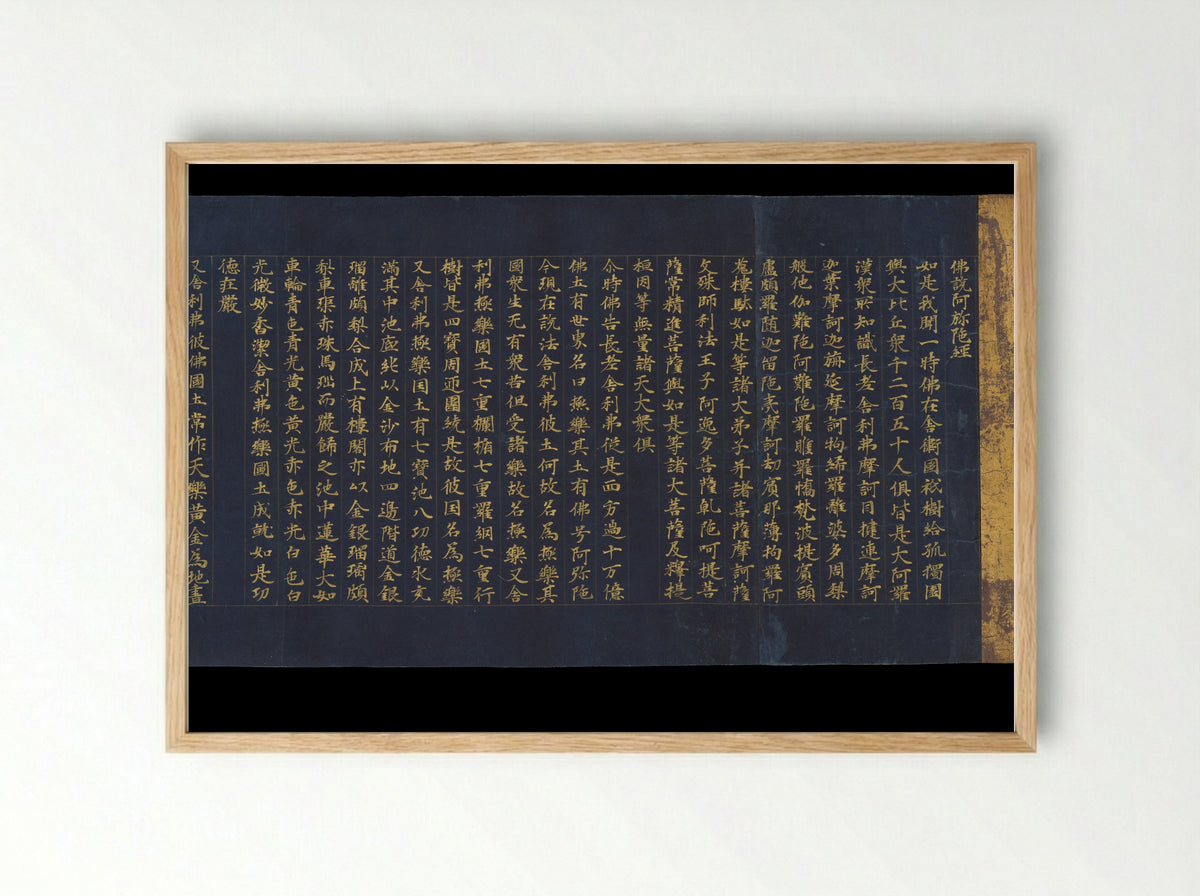 佛説阿弥陁經
如是我聞一時佛在舎衛國祇樹給孤獨園
與大比丘衆千二百五十人俱皆是大阿羅
漢衆所知識長老舎利弗摩訶目揵連摩訶
迦葉摩訶迦旃延摩訶拘絺羅離婆多周梨
般他伽難陁阿難陁羅睺羅憍梵波提賓頭
盧頗羅随迦留陁夷摩訶劫賓那薄拘羅阿
㝹樓馱如是等諸大弟子并諸菩薩摩訶薩
文殊師利法王子阿逸多菩薩乹陁呵提菩
薩常精進菩薩與如是等諸大菩薩及釋提
桓因等無量諸天大衆俱
尒時佛告長老舎利弗從是西方過十万億
佛土有世界名曰極樂其土有佛号阿弥陁
今現在説法舎利弗彼土何故名為極樂其
國衆生无有衆苦但受諸樂故名極樂又舎
利弗極樂國土七重欄楯七重羅網七重行
樹皆是四寳周迊圍繞是故彼国名為極樂
又舎利弗極樂国土有七寳池八功德水充
滿其中池底純以金沙布地四邊階道金銀
瑠離頗梨合成上有樓閣亦以金銀瑠璃頗
梨車𤦲赤珠馬瑙而嚴飾之池中蓮華大如
車輪青色青光黄色黄光赤色赤光白色白
光微妙香潔舎利弗極樂國土成就如是功
德荘嚴
又舎利弗彼佛國土常作天樂黄金為地晝